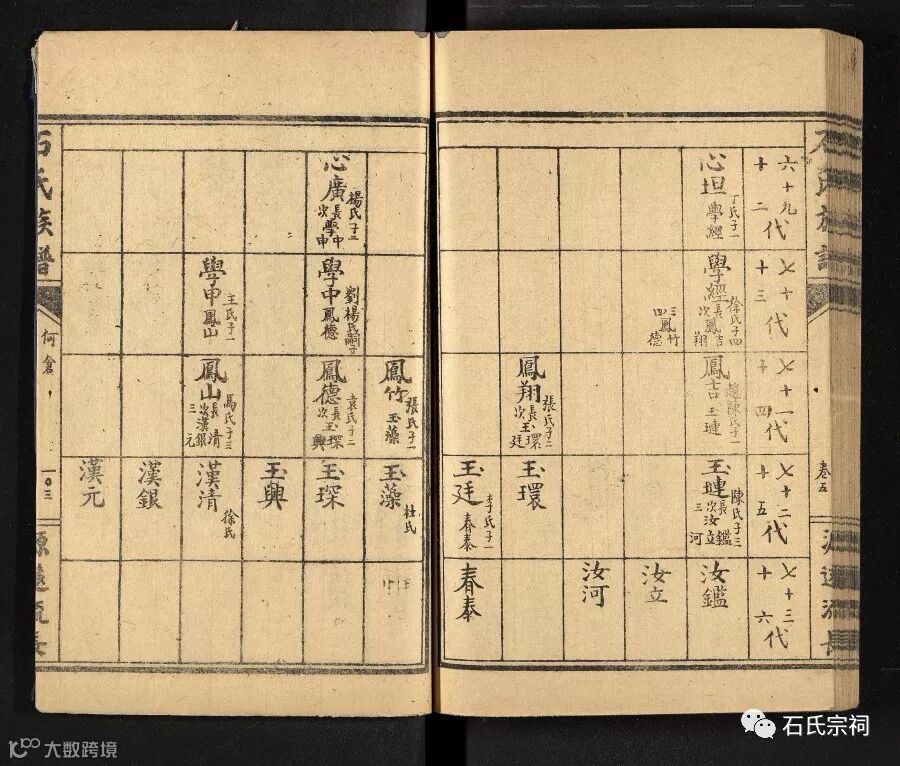 石氏族譜
六十九代
十二
心坦
丁氏子一
學經
七十代
十三
學經
徐氏子四
長鳳吉
次鳳翔
三鳳竹
四鳳德
七十一代
十四
鳳吉
趙陳氏子一
玉璉
鳳翔
張氏子二
長玉環
次玉廷
七十二代
十五
玉璉
陳氏子三
長汝鑑
次汝立
三汝河
玉環
玉廷
李氏子一
春泰
七十三代
十六
汝鑑
汝立
汝河
春泰
卷五
源遠流長
心廣
楊氏子二
長學中
次學申
學中
劉楊氏嗣子
鳳德
學申
王氏子一
鳳山
鳳竹
張氏子一
玉藻
鳳德
袁氏子二
長玉琛
次玉興
鳳山
馬氏子三
長漢清
次漢銀
三漢元
玉藻
杜氏
玉琛
玉興
漢清
徐氏
漢銀
漢元
石氏族譜
何倉
一〇三
源遠流長
石氏宗祠
大数跨境